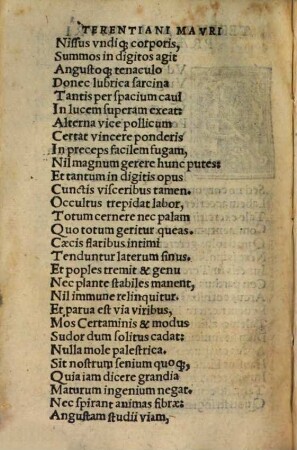 TERENTIANI MAVRI
Nissus vndiq; corporis,
Summos in digitos agit
Angustoq; tenaculo
Donec lubrica sarcina
Tantis per spacium caui
In lucem superam exeat:
Alterna vice pollicum
Certat vincere ponderis
In preceps facilem fugam,
Nil magnum gerere hunc putes:
Et tantum in digitis opus
Cunctis visceribus tamen.
Occultus trepidat labor,
Totum cernere nec palam
Quo totum geritur queas.
Cæcis flatibus intimi
Tenduntur laterum sinus.
Et poples tremit & genu
Nec plante stabiles manent,
Nil immune relinquitur.
Et parua est via viribus,
Mos Certaminis & modus
Sudor dum solitus cadat:
Nulla mole palestrica.
Sit nostrum senium quoq;,
Quia iam dicere grandia
Maturum ingenium negat.
Nec spirant animas fibræ:
Angustam studii viam,